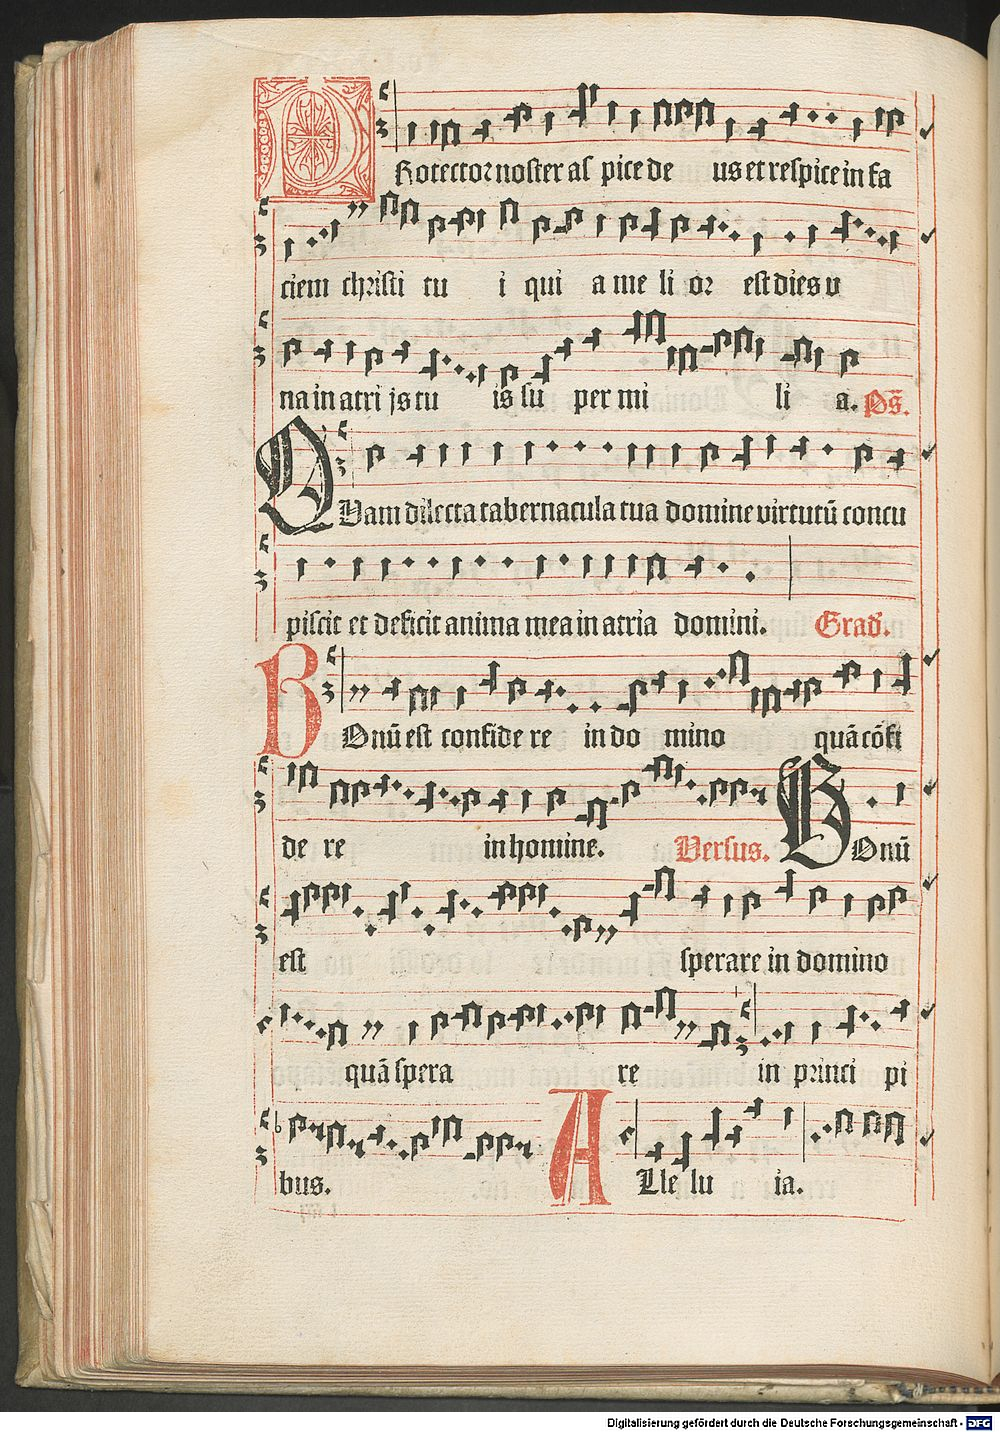 PRotector noster aspice deus et respice in fa
ciem christi tui quia melior est dies u
na in atrijs tuis super milia. Ps̄.
QUam dilecta tabernacula tua domine virtutū concu
piscit et deficit anima mea in atria domini. Grad.
BOnū est confidere in domino quā cōfi
dere in homine. Versus. BOnū
est sperare in domino
quā sperare in princi pi
bus. ALleluia.
Digitalisierung gefördert durch die Deutsche Forschungsgemeinschaft - DFG